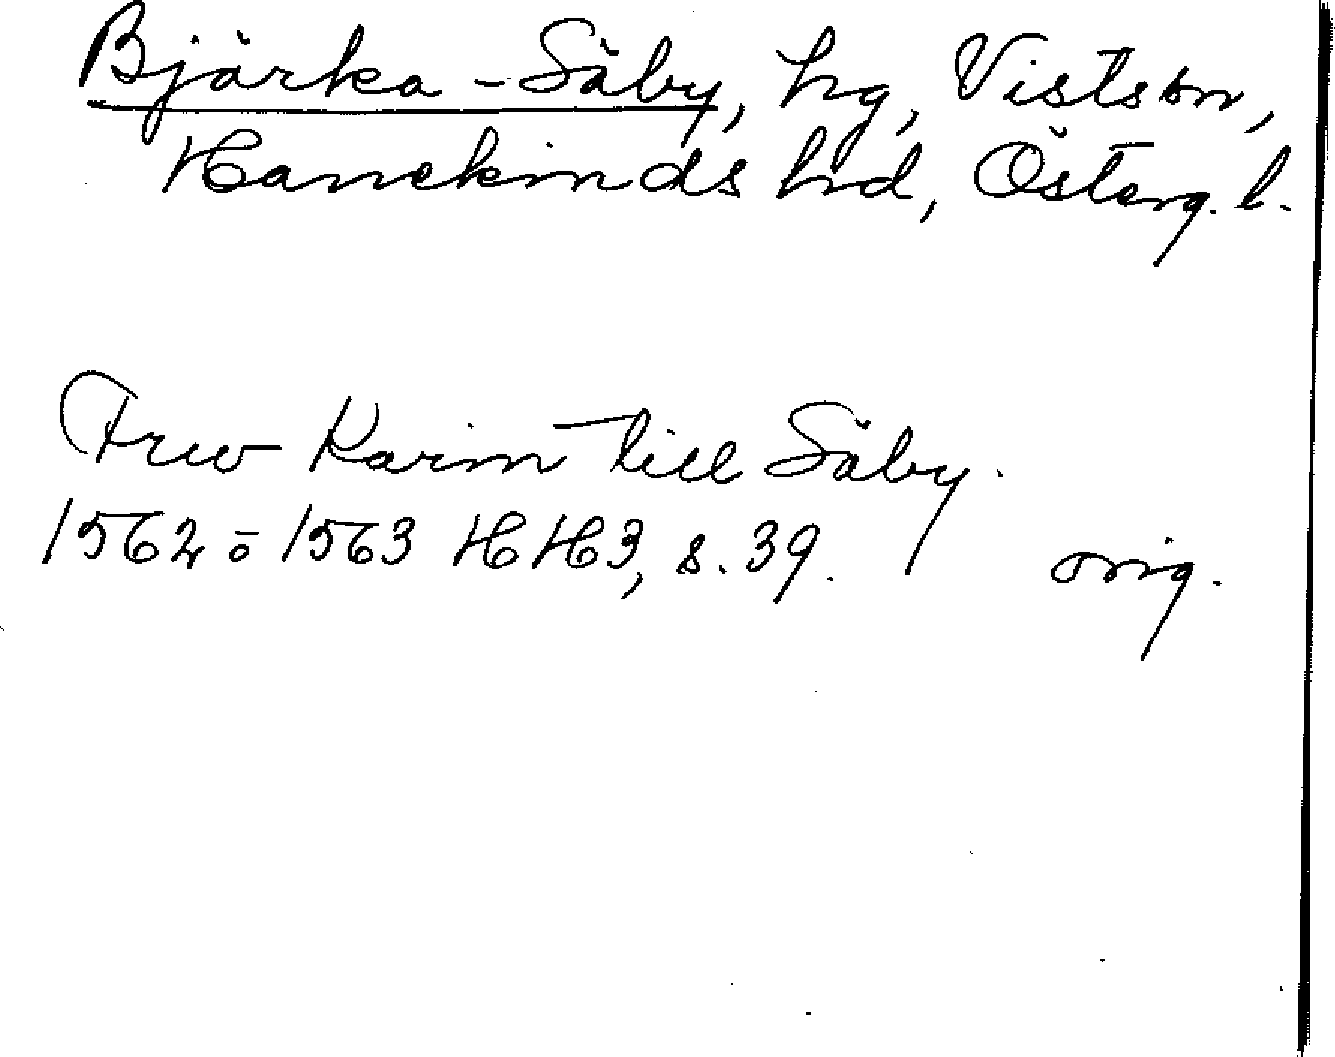 Bjärka-Säby, hg, Vists sn,
Hanekinds hd, Österg. l.
Frw Karin till Säby.
1562 o 1563 HH3, s. 39. orig.